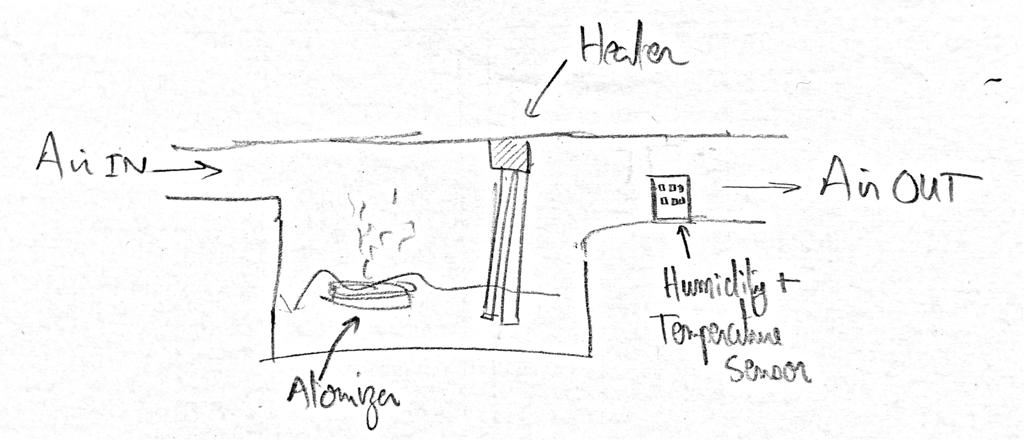 Heater
Air IN
Air OUT
Humidity +
Temperature
Sensor
Atomizer